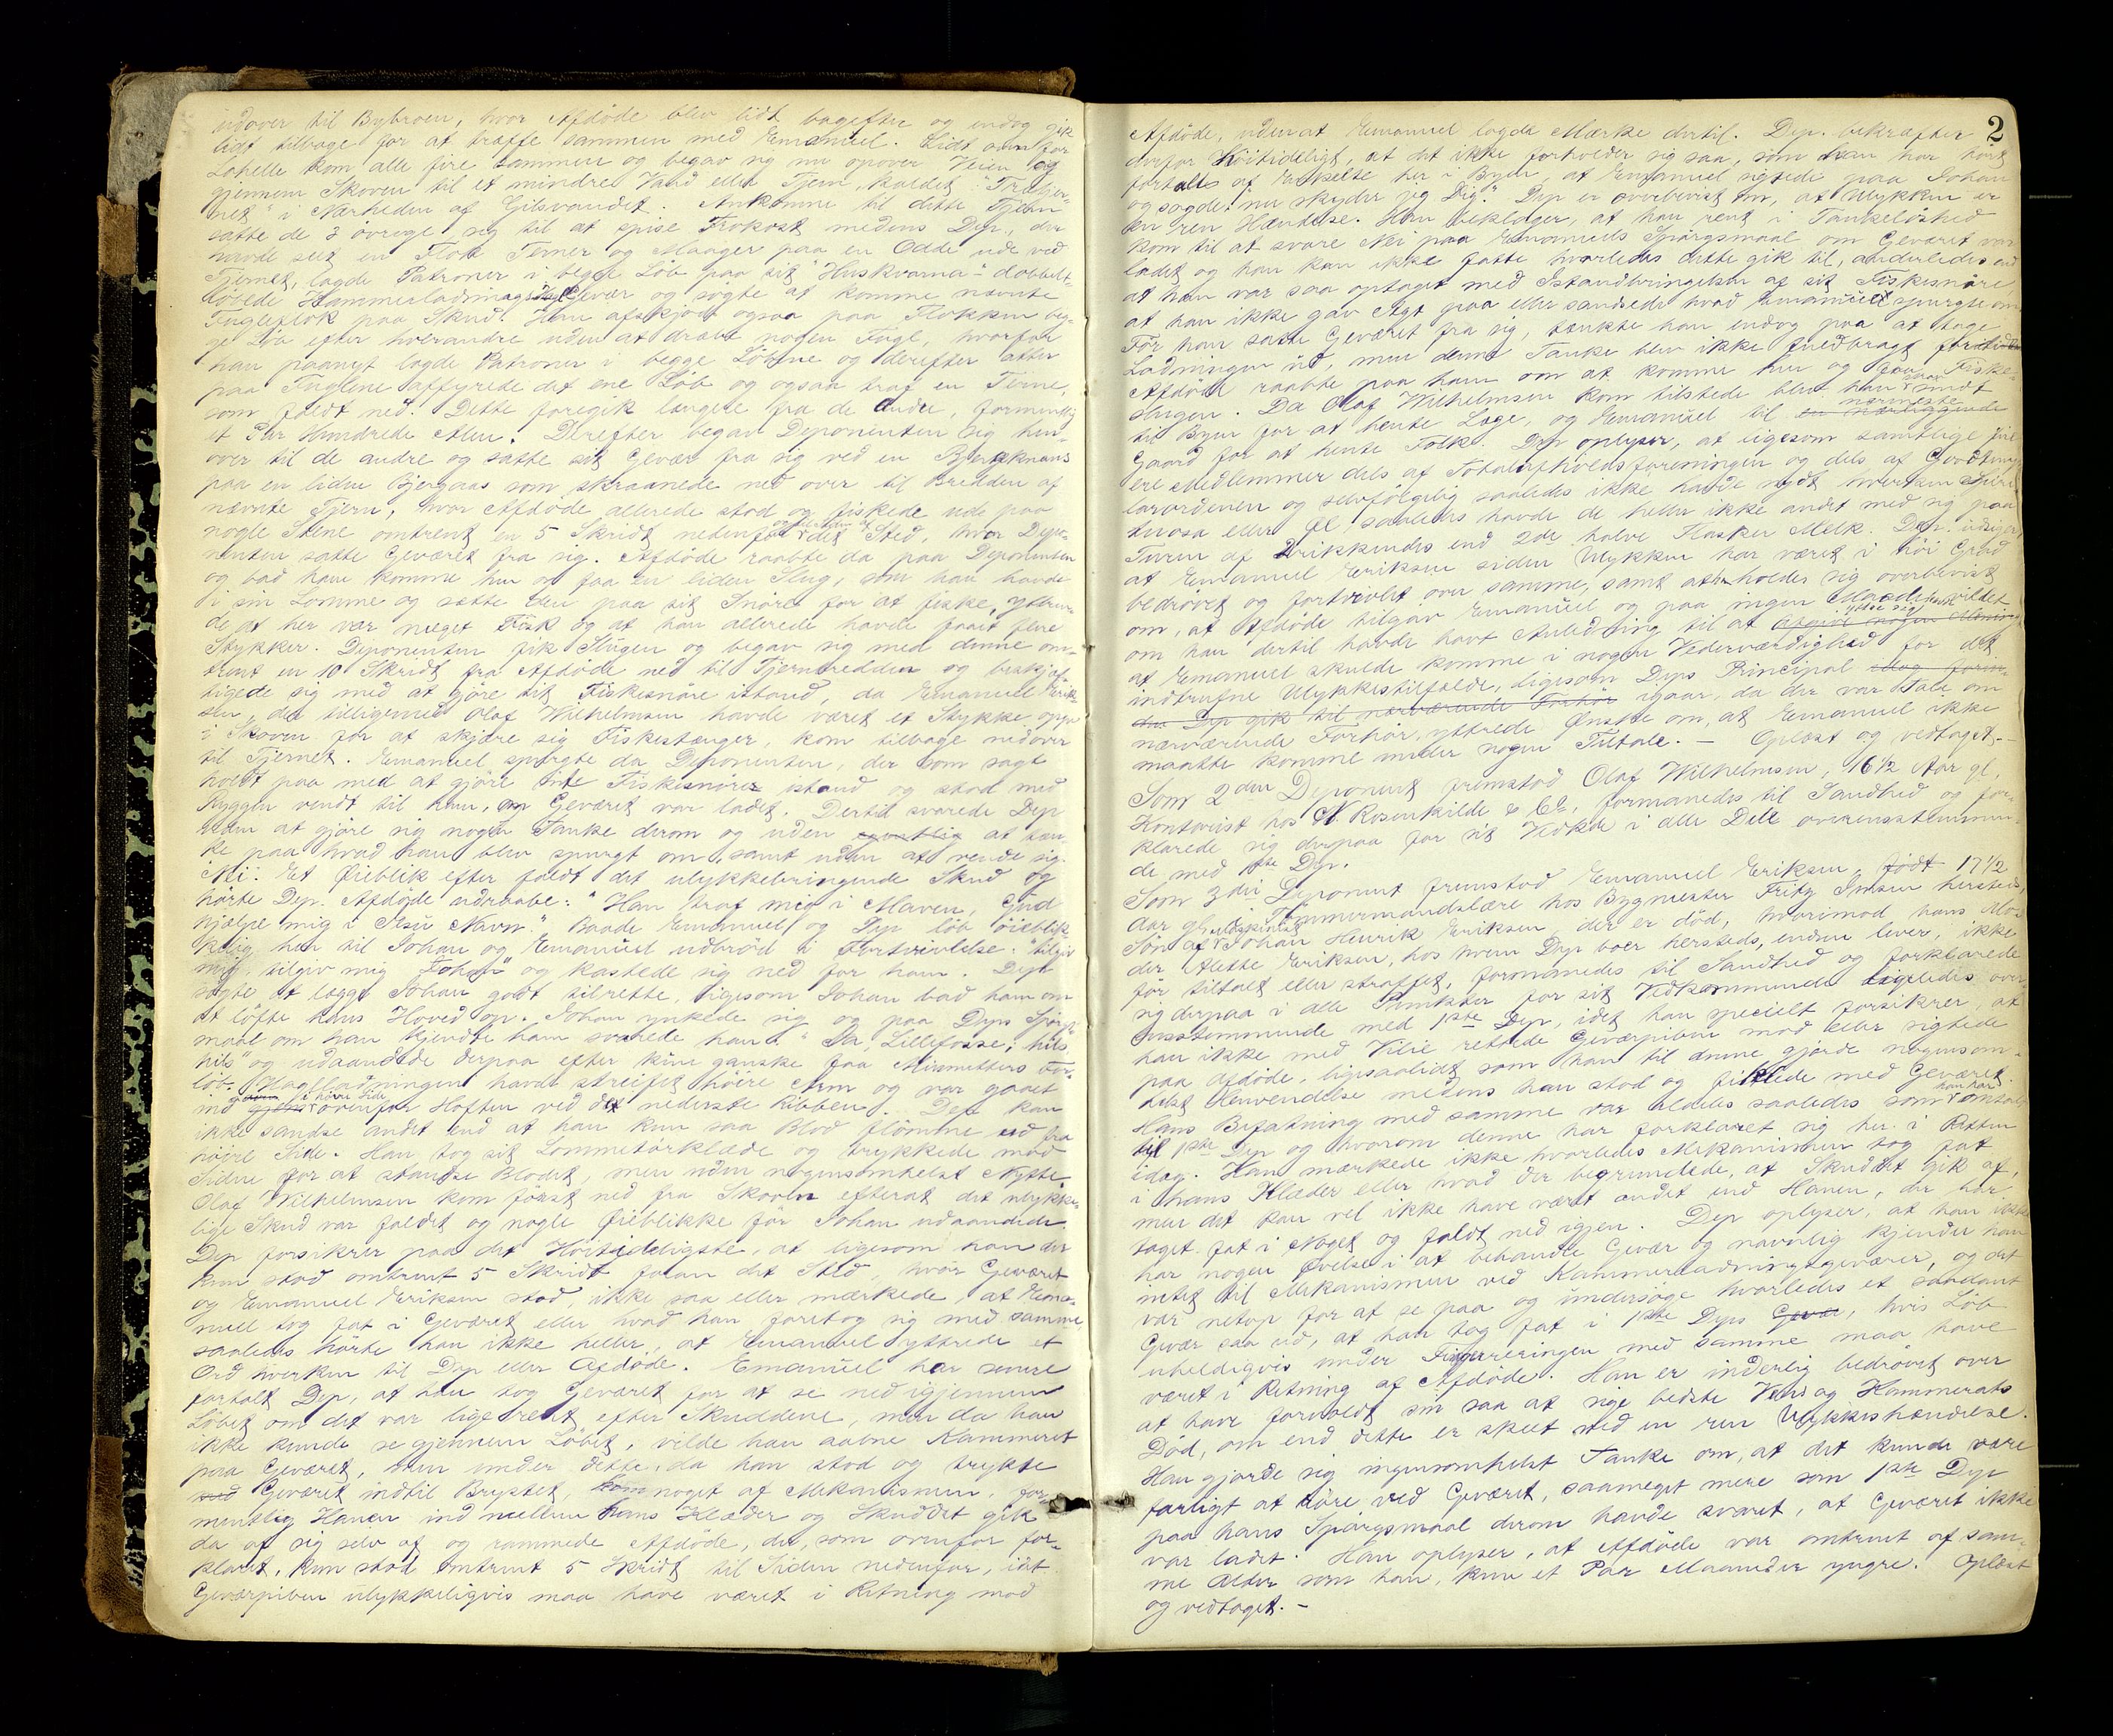 udover til Bybroen, hvor Afdöde blev lidt bagefter og endog gik
lidt tilbage for at træffe sammen med Emanuel. Lidt ovenfor
Lahelle kom alle fire sammen og begav sig nu opover Veien og
gjennem Skoven til et mindre Vand eller Tjern, kaldet "Trætjer-
net" i Nærheden af Gilsvandet. Ankomne til dette Tjern
satte de 3 övrige sig til at spise Frokost medens Dep., der
havde seet en Flok Terner og Maager paa en Odde ude ved
Tjernet, lagde Patroner i begge Löb paa sit "Huskvarna"- dobbelt-
löbede Kammerladningsgevær og sögte at komme nævnte
Fugleflok paa Skud. Han afskjöd ogsaa paa Flokken beg-
ge Löb efter hverandre uden at dræbe nogen Fugl, hvorfor
han paanyt lagde Patroner i begge Löbene og derefter atter
paa Fuglene affyrede det ene Löb og ogsaa traf en Terne,
som faldt ned. Dette foregik længere fra de andre, formentlig
et Par Hundrede Alen. Derefter begav Deponenten sig hen-
over til de andre og satte sit Gevær fra sig ved en Bjergknaus
paa en liden Bjergaas som skraanede ned over til Bredden af
nævnte Tjern, hvor Afdöde allerede stod og fiskede ude paa
nogle Stene omtrent en 5 Skridt nedenfor det Sted, hvor Depo-
nenten satte Geværet fra sig. Afdöde raabte da paa Deponenten
og bad ham komme hen og faa en liden Slug, som han havde
i sin Lomme og sætte den paa sit Snöre for at fiske, ytren-
de at her var meget Fisk og at han allerede havde faaet flere
Stykker. Deponenten fik Slugen og begav sig med denne om-
trent en 10 Skridt fra Afdöde ned til Tjernbredden og beskjæf-
tigede sig med at gjöre sit Fiskesnöre istand, da Emanuel Erik-
sen, der tilligemed Olaf Wilhelmsen havde været et Stykke oppe
i Skoven for at skjære sig Fiskestænger, kom tilbage nedover
til Tjernet. Emanuel spurgte da Deponenten, der som sagt
holdt paa med at gjöre sit Fiskesnöre istand og stod med
Ryggen vendt til ham, om Geværet var ladet. Dertil svarede Dep
uden at gjöre sig nogen Tanke derom og uden egentlig at tæn-
ke paa hvad han blev spurgt om, samt uden at vende sig:
Nei. Et Öieblik efter faldt det ulykkebringende Skud og
hörte Dep. Afdöde udraabe: "Han traf mig i Maven, Gud
hjælpe mig i Jesu Navn." Baade Emanuel og Dep löb öieblik-
kelig hen til Johan og Emanuel udbröd i Fortvivlelse: "tilgiv
mig, tilgiv mig Johan" og kastede sig ned for ham. Dep
sögte at lægge Johan godt tilrette, ligesom Johan bad ham om
at löfte hans Hoved op. Johan ynkede sig og paa Deps Spörgs-
maal om han kjendte ham svarede han: "Ja, Lillefosse; hils
hils" og udaandede derpaa efter kun ganske faa Minutters For-
löb. Haglladningen havde streifet höire Arm og var gaaet
ind i höire Side ovenfor Hoften ved det nederste Ribben. Dep kan
ikke sandse andet end at han kun saa Blod flömme ud fra
höire Side. Han tog sit Lommetörklæde og trykkede mod
Siden for at standse Blodet, men uden nogensomhelst Nytte.
Olaf Wilhelmsen kom först ned fra Skoven efterat det ulykke-
lige Skud var faldet og nogle Öieblikke för Johan udaandede.
Dep forsikrer paa det Höitideligste, at ligesom han der
kun stod omtrent 5 Skridt foran det Sted, hvor Geværet
og Emanuel Eriksen stod, ikke saa eller mærkede, at Ema-
nuel tog fat i Geværet eller hvad han foretog sig med samme
saaledes hörte han ikke heller, at Emanuel yttrede et
Ord hverken til Dep eller Afdöde. Emanuel har senere
fortalt Dep, at han tog Geværet for at se ned igjennem
Löbet om det var lige rent efter Skuddene, men da han
ikke kunde se gjennem Löbet, vilde han aabne Kammeret
paa Geværet, men under dette, da han stod og trykte
med Geværet indtil Brystet, kom noget af Mekanismen, for-
mentlig Hanen ind mellem hans Klæder og Skuddet gik
da af sig selv af og rammede Afdöde, der, som ovenfor for-
klaret, kun stod omtrent 5 Skridt til Siden nedenfor, idet
Geværpiben ulykkeligvis maa have været i Retning mod
2
Afdöde, uden at Emanuel lagde Mærke dertil. Dep. bekræfter
derfor Höitideligt, at det ikke forholder sig saa, som han har hört
fortalte af Enkelte her i Byen, at Emanuel sigtede paa Johan
og sagde: "nu skyder jeg Dig". Dep er overbevist om, at Ulykken er
en ren Hændelse. Han beklager, at han rent i Tankelöshed
kom til at svare Nei paa Emanuels Spörgsmaal om Geværet var
ladet og han kan ikke fatte hvorledes dette gik til, anderledes end
at han var saa optaget med Istandbringelsen af sit Fiskesnöre,
at han ikke gav Agt paa eller sandsede hvad Emanuel spurgte om.
För han satte Geværet fra sig, tænkte han endog paa at tage
Ladningen ud, men denne Tanke blev ikke fuldbragt
Afdöde raabte paa ham om at komme hen og faa Fiske-
slugen. Da Olaf Wilhelmsen kom tilstede blev han strax sendt
til Byen for at hente Læge, og Emanuel til nærmeste en nærliggende
Gaard for at hente Folk. Dep oplyser, at ligesom samtlige fire
ere Medlemmer dels af Totalafholdsforeningen og dels af Godtemp-
larordenen og selvfölgelig saaledes ikke havde nydt hverken Spiri-
tuosa eller Öl, saaledes havde de heller ikke andet med sig paa
Turen af Drikkendes end 2de halve Flasker Melk. Dep. udsiger,
at Emanuel Eriksen siden Ulykken har været i höi Grad
bedrövet og fortvivlet over samme, samt at han holder sig overbevist
om, at Afdöde tilgav Emanuel og paa ingen Maade vilde,
om han dertil havde havt Anledning til at yttre sig afgive nogen Mening
at Emanuel skulde komme i nogen Vederværdighed for det
indtrufne Ulykkestilfælde, ligesom Deps Principal
den Dep gik til nærværende Forhör igaar, da der var Tale om
nærværende Forhör, yttrede Önske om, at Emanuel ikke
maatte komme under nogen Tiltale. – Oplæst og vedtaget. –
Som 2den Deponent fremstod Olaf Wilhelmsen, 16 1/2 Aar gl,
Kontorist hos N. Rosenkilde & Co, formanedes til Sandhed og for-
klarede sig derpaa for sit Vedkde i alle Dele overensstemmen-
de med 1ste Dep.
Som 3die Deponent fremstod Emanuel Eriksen, födt 17 1/2
Aar gl, i Tömmermandslære hos Bygmester Fritz Jensen hersteds,
Sön af Johan Henrik Eriksen, der er död, hvorimod hans Mo-
der Alette Eriksen, hos hvem Dep boer hersteds, endnu lever, ikke
för tiltalt eller straffet, formanedes til Sandhed og forklarede
sig derpaa i alle Punkter for sit Vedkommende ligeledes over-
ensstemmende med 1ste Dep, idet han specielt forsikrer, at
han ikke med Vilie rettede Geværpiben mod eller sigtede
paa Afdöde, ligesaalidt som han til denne gjorde nogensom-
helst Henvendelse medens han stod og fiklede med Geværet.
Hans Befatning med samme var aldeles saaledes som han har omtalt
til 1ste Dep og hvorom denne har forklaret sig her i Retten
idag. Han mærkede ikke hvorledes Mekanismen tog fat
i hans Klæder eller hvad der begrundede, at Skuddet gik af,
men det kan vel ikke have været andet end Hanen, der har
taget fat i Noget og faldt ned igjen. Dep oplyser, at han ikke
har nogen Övelse i at behandle Gevær og navnlig kjender han
intet til Mekanismen ved Kammerladningsgeværer, og det
var netop for at se paa og undersöge hvorledes et saadant
Gevær saa ud, at han tog fat i 1ste Deps Gevæ, hvis Löb
uheldigvis under Fingereringen med samme maa have
været i Retning af Afdöde. Han er inderlig bedrövet over
at have forvoldt sin saa at sige bedste Vens og Kammerats
Död, om end dette er skeet ved en ren Ulykkeshændelse.
Han gjorde sig ingensomhelst Tanke om, at det kunde være
farligt at röre ved Geværet, saameget mere som 1ste Dep
paa hans Spörgsmaal derom havde svaret, at Geværet ikke
var ladet. Han oplyser, at Afdöde var omtrent af sam-
me Alder som han, kun et Par Maaneder yngre. Oplæst
og vedtaget. –